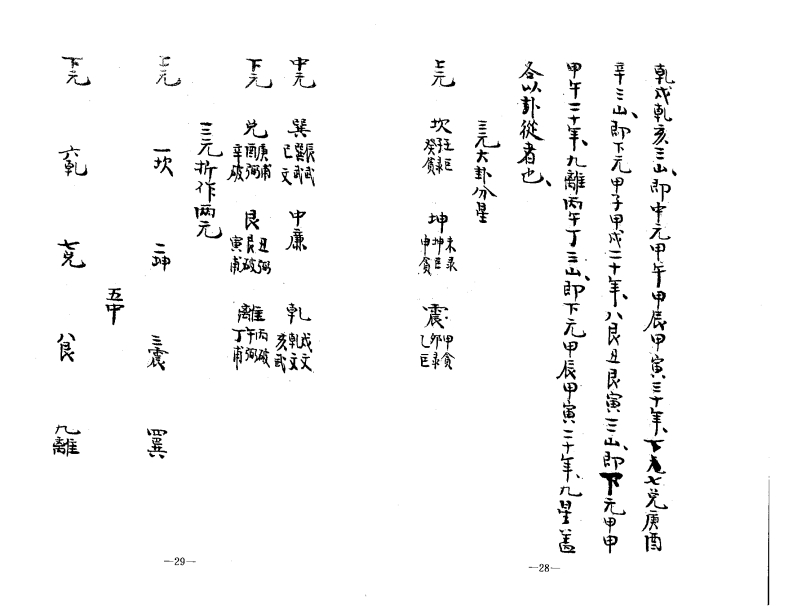 乾戌乾亥三山、即中元甲午甲辰甲寅三十年、下元七兑庚酉
辛三山、即下元甲子甲戌二十年、八艮丑艮寅三山、即下元甲申
甲午二十年、九離丙午丁三山、即下元甲辰甲寅二十年、九星盖
各以卦從者也、
三元大卦分星
上元 坎 壬巨 子録 癸貪 坤 未录 坤巨 申貪 震 甲貪 卯录 乙巨
—28—
中元 巽 辰武 巽武 巳文 中廉 乾 戌文 乾文 亥武
下元 兑 庚甫 酉弼 辛破 艮 丑弼 艮破 寅甫 離 丙破 午弼 丁甫
三元折作两元
上元 一坎 二坤 三震 四巽
五中
下元 六乾 七兑 八艮 九離
—29—